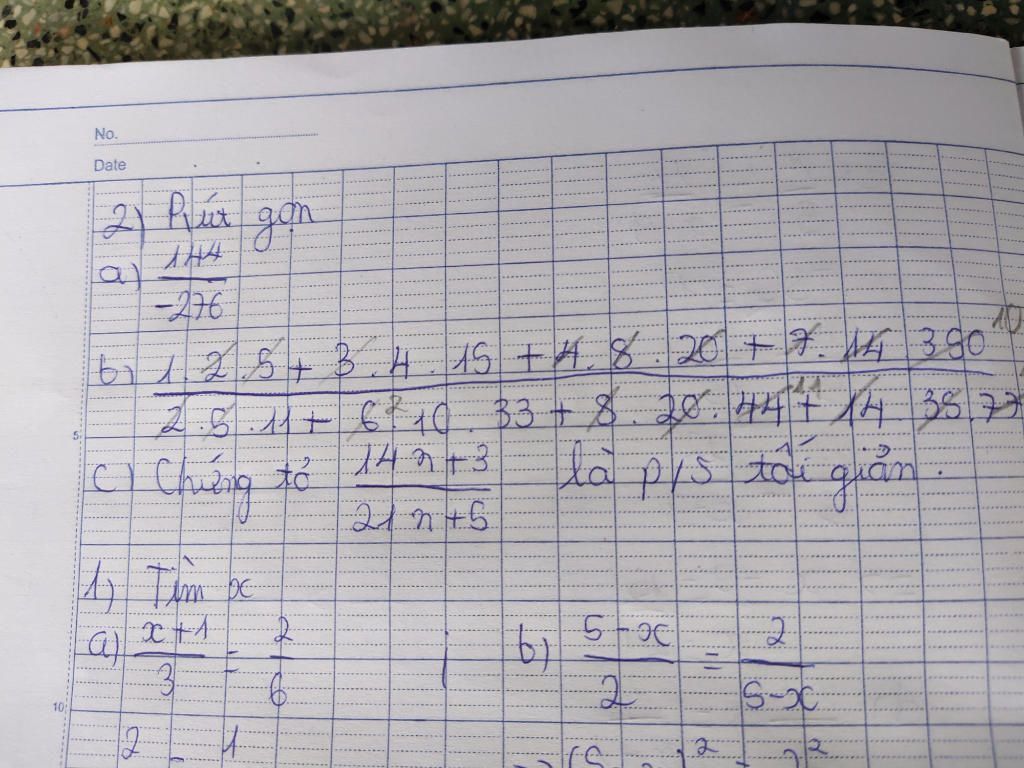 No.
Date
2) Rút gọn
a) 144/-276
b) 1.2.5 + 3.4.15 + 4.8.20 + 7.14.350 10
2.5.11 + 6 2.10.33 + 8.20.44 11 + 14.35.77
5
c) Chứng tỏ 14n+3/21n+5 là p/s tối giản.
1) Tìm x
a) x+1/3 = 2/6 ; b) 5-x/2 = 2/5-x
10
2 1